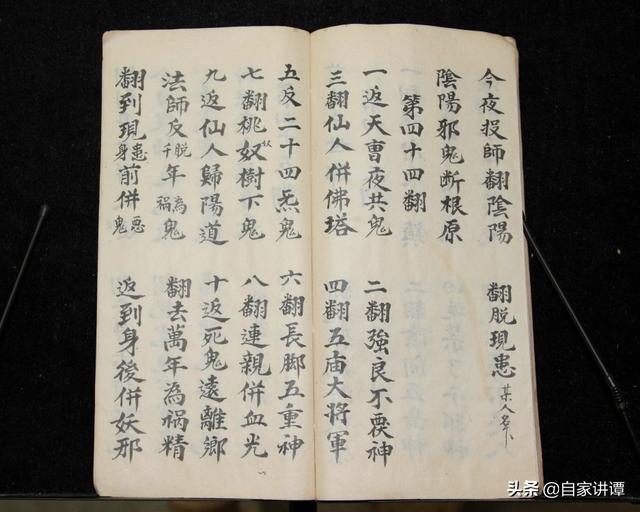 今夜投師翻陰陽 翻脱現患某人名下
陰陽邪鬼断根原
第四十四翻
一返天曹夜共鬼 二翻強良不神
三翻仙人併佛塔 四翻五庙大將軍
五反二十四炁鬼 六翻長脚五重神
七翻桃奴樹下鬼 八翻連親併血光
九返仙人歸陽道 十返死鬼遠離鄉
法師反脱千年為祸鬼 翻去萬年為祸精
翻到現患身前併惡鬼 返到身後併妖邪
头条 @自家讲谭